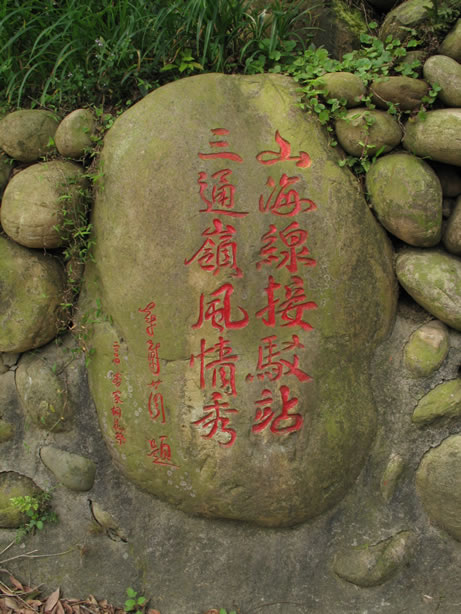 山海線接駁站
三通嶺風情秀
題